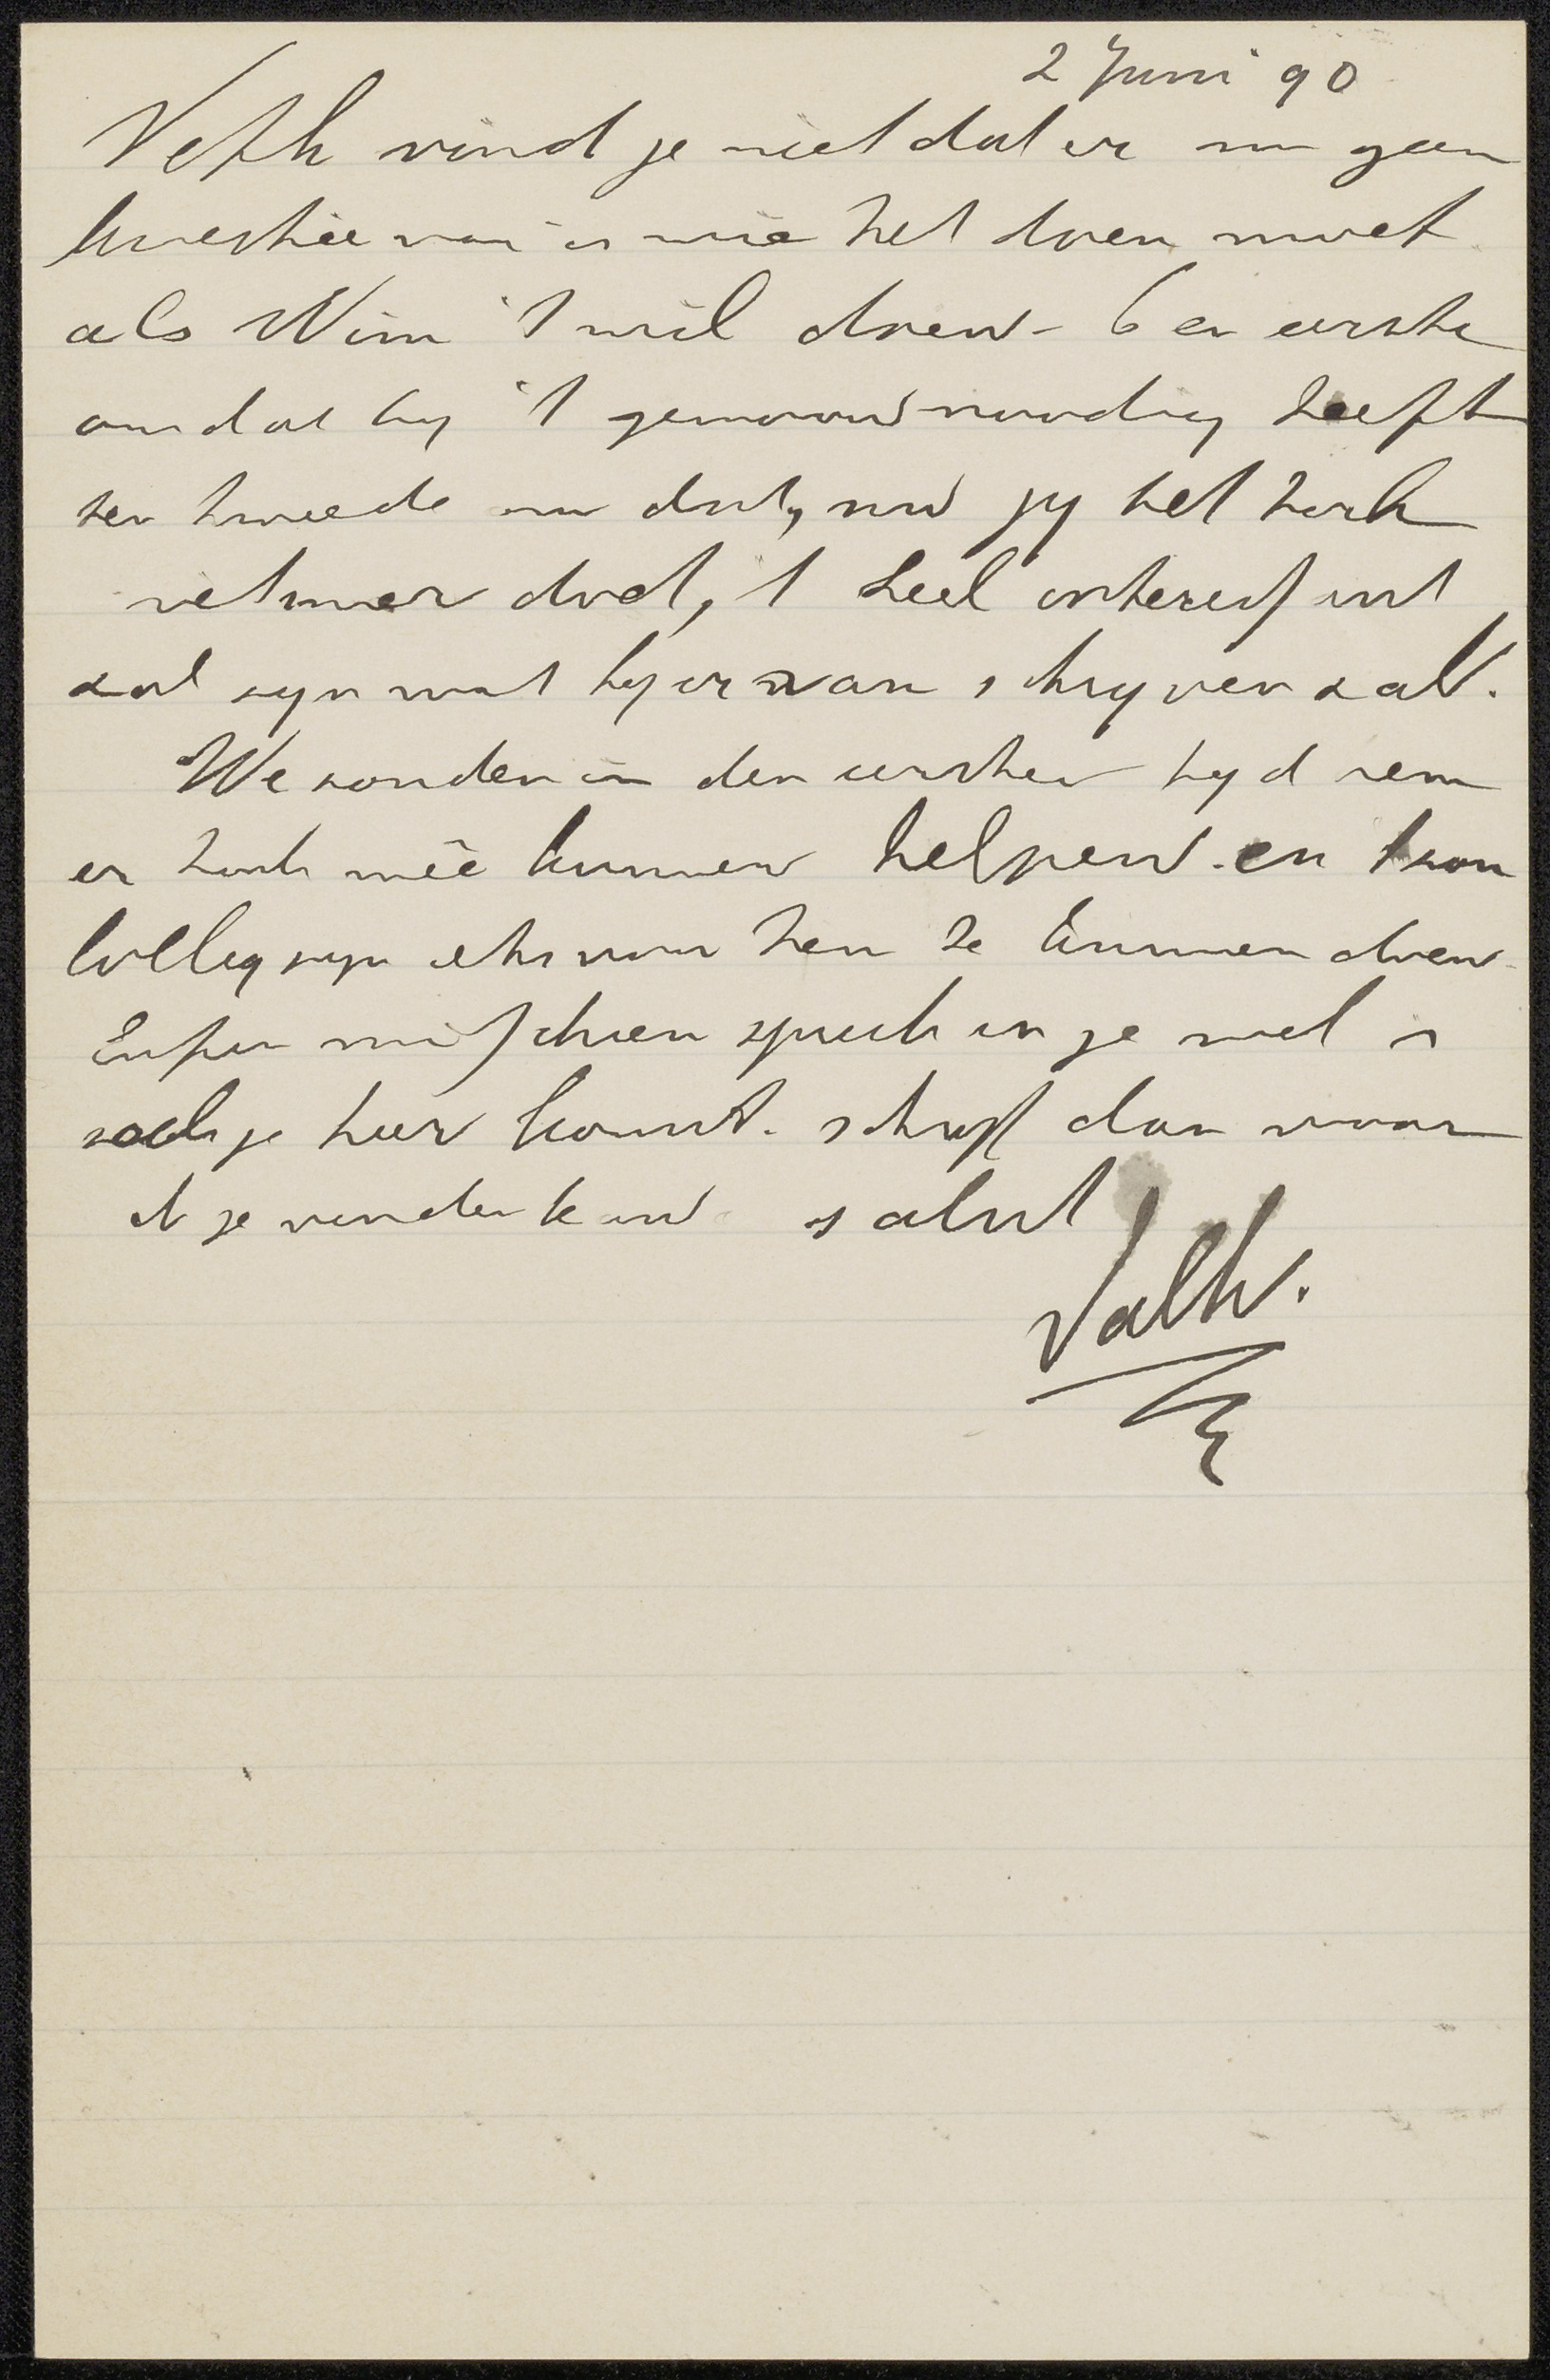 2 Juni 90
Veth vind je niet dat er nu geen
kwestie van is wie het doen moet
als Wim 't wil doen - ten eerste
omdat hy 't gewoon noodig heeft
ten tweede omdat, nu jy het toch
niet meer doet, 't heel interessant
zal zyn wat hy er van schryven zal.
We zouden in den eersten tyd hem
er toch meê kunnen helpen en 't zou
lollig zyn iets voor hem te kunnen doen
Enfin misschien spreek ik je wel s
zoodr je hier komt. schryf dan waar
ik je vinden kan salut
Valk.